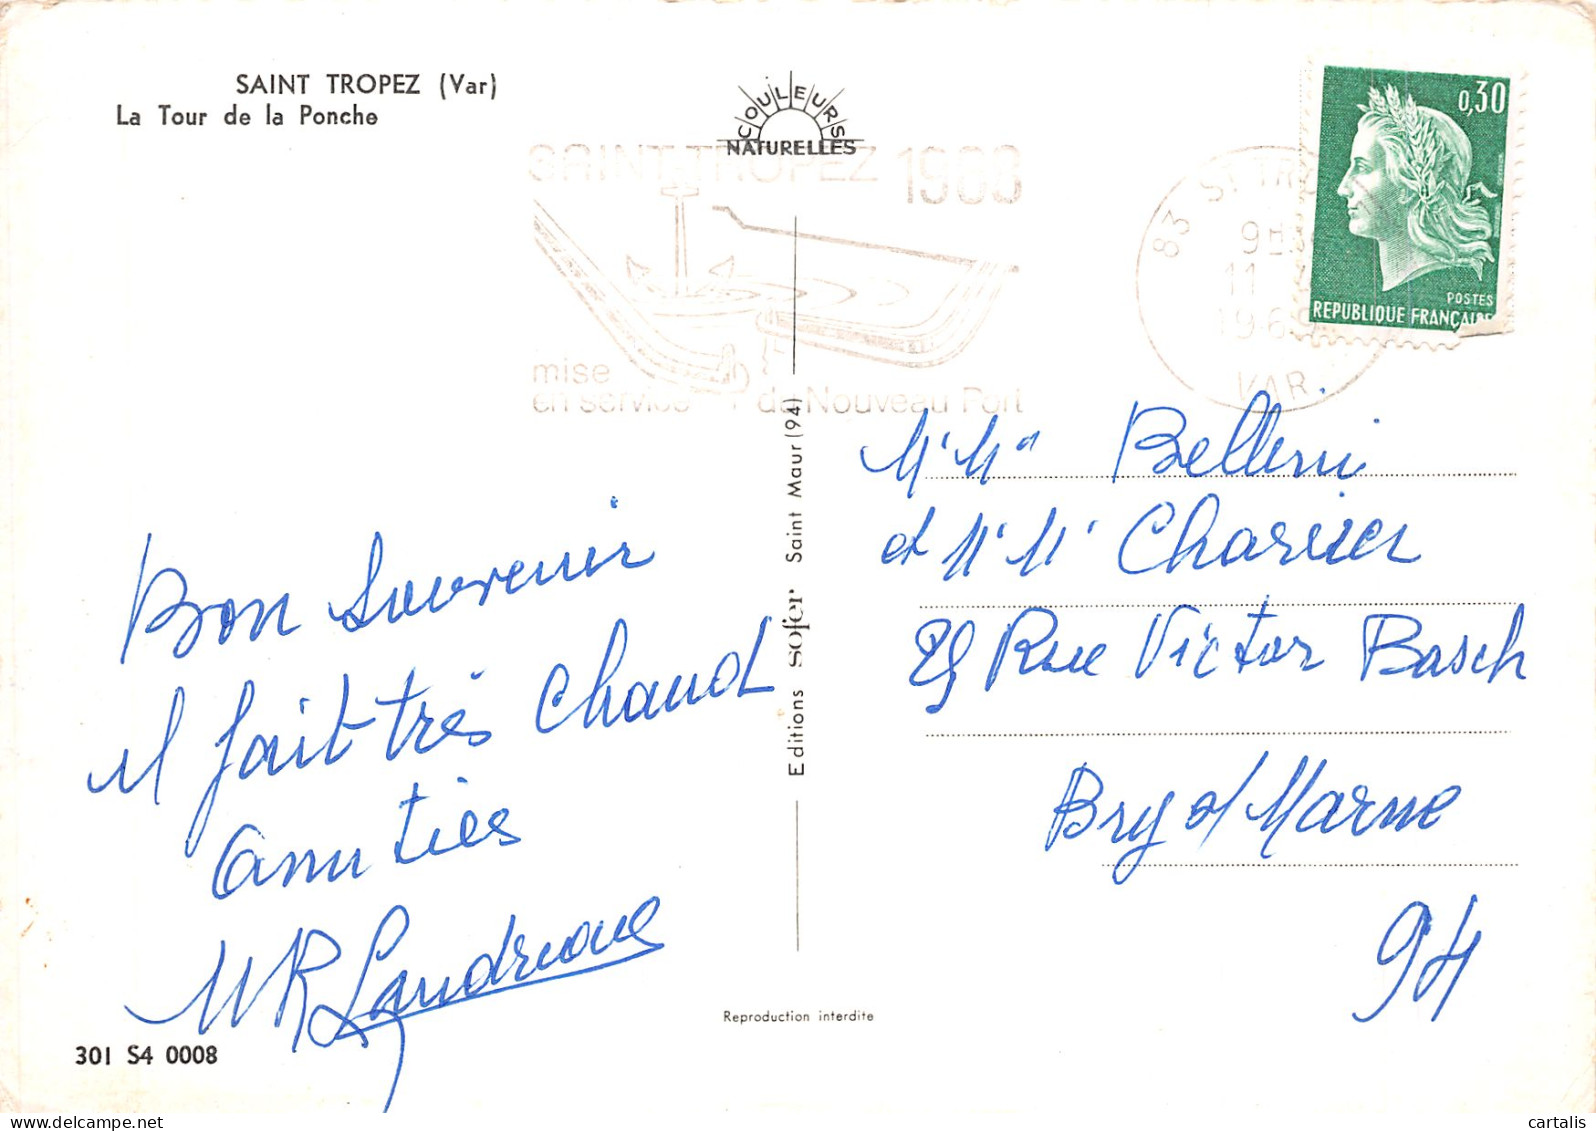 SAINT TROPEZ (Var)
La Tour de la Ponche
COULEURS
NATURELLES
SAINT TROPEZ 1968
mise
en service du Nouveau Port
83 ST TRO
9H
11
1969
VAR
0,30
POSTES
REPUBLIQUE FRANÇAISE
Bon Souvenir
il fait très chaud
amitiés
MR Landreau
Mr Me Bellini
et Mr Mr Charrier
25 Rue Victor Basch
Bry s/ Marne
94
Editions sofer Saint Maur (94)
Reproduction interdite
301 S4 0008
delcampe.net
cartalis